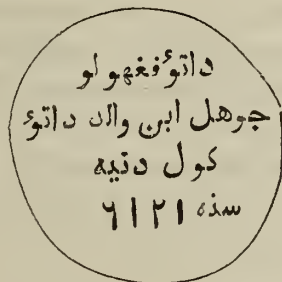 داتوء فغهولو
جوهل ابن والد داتوء
كول دنيه
سنه ٦١٢١